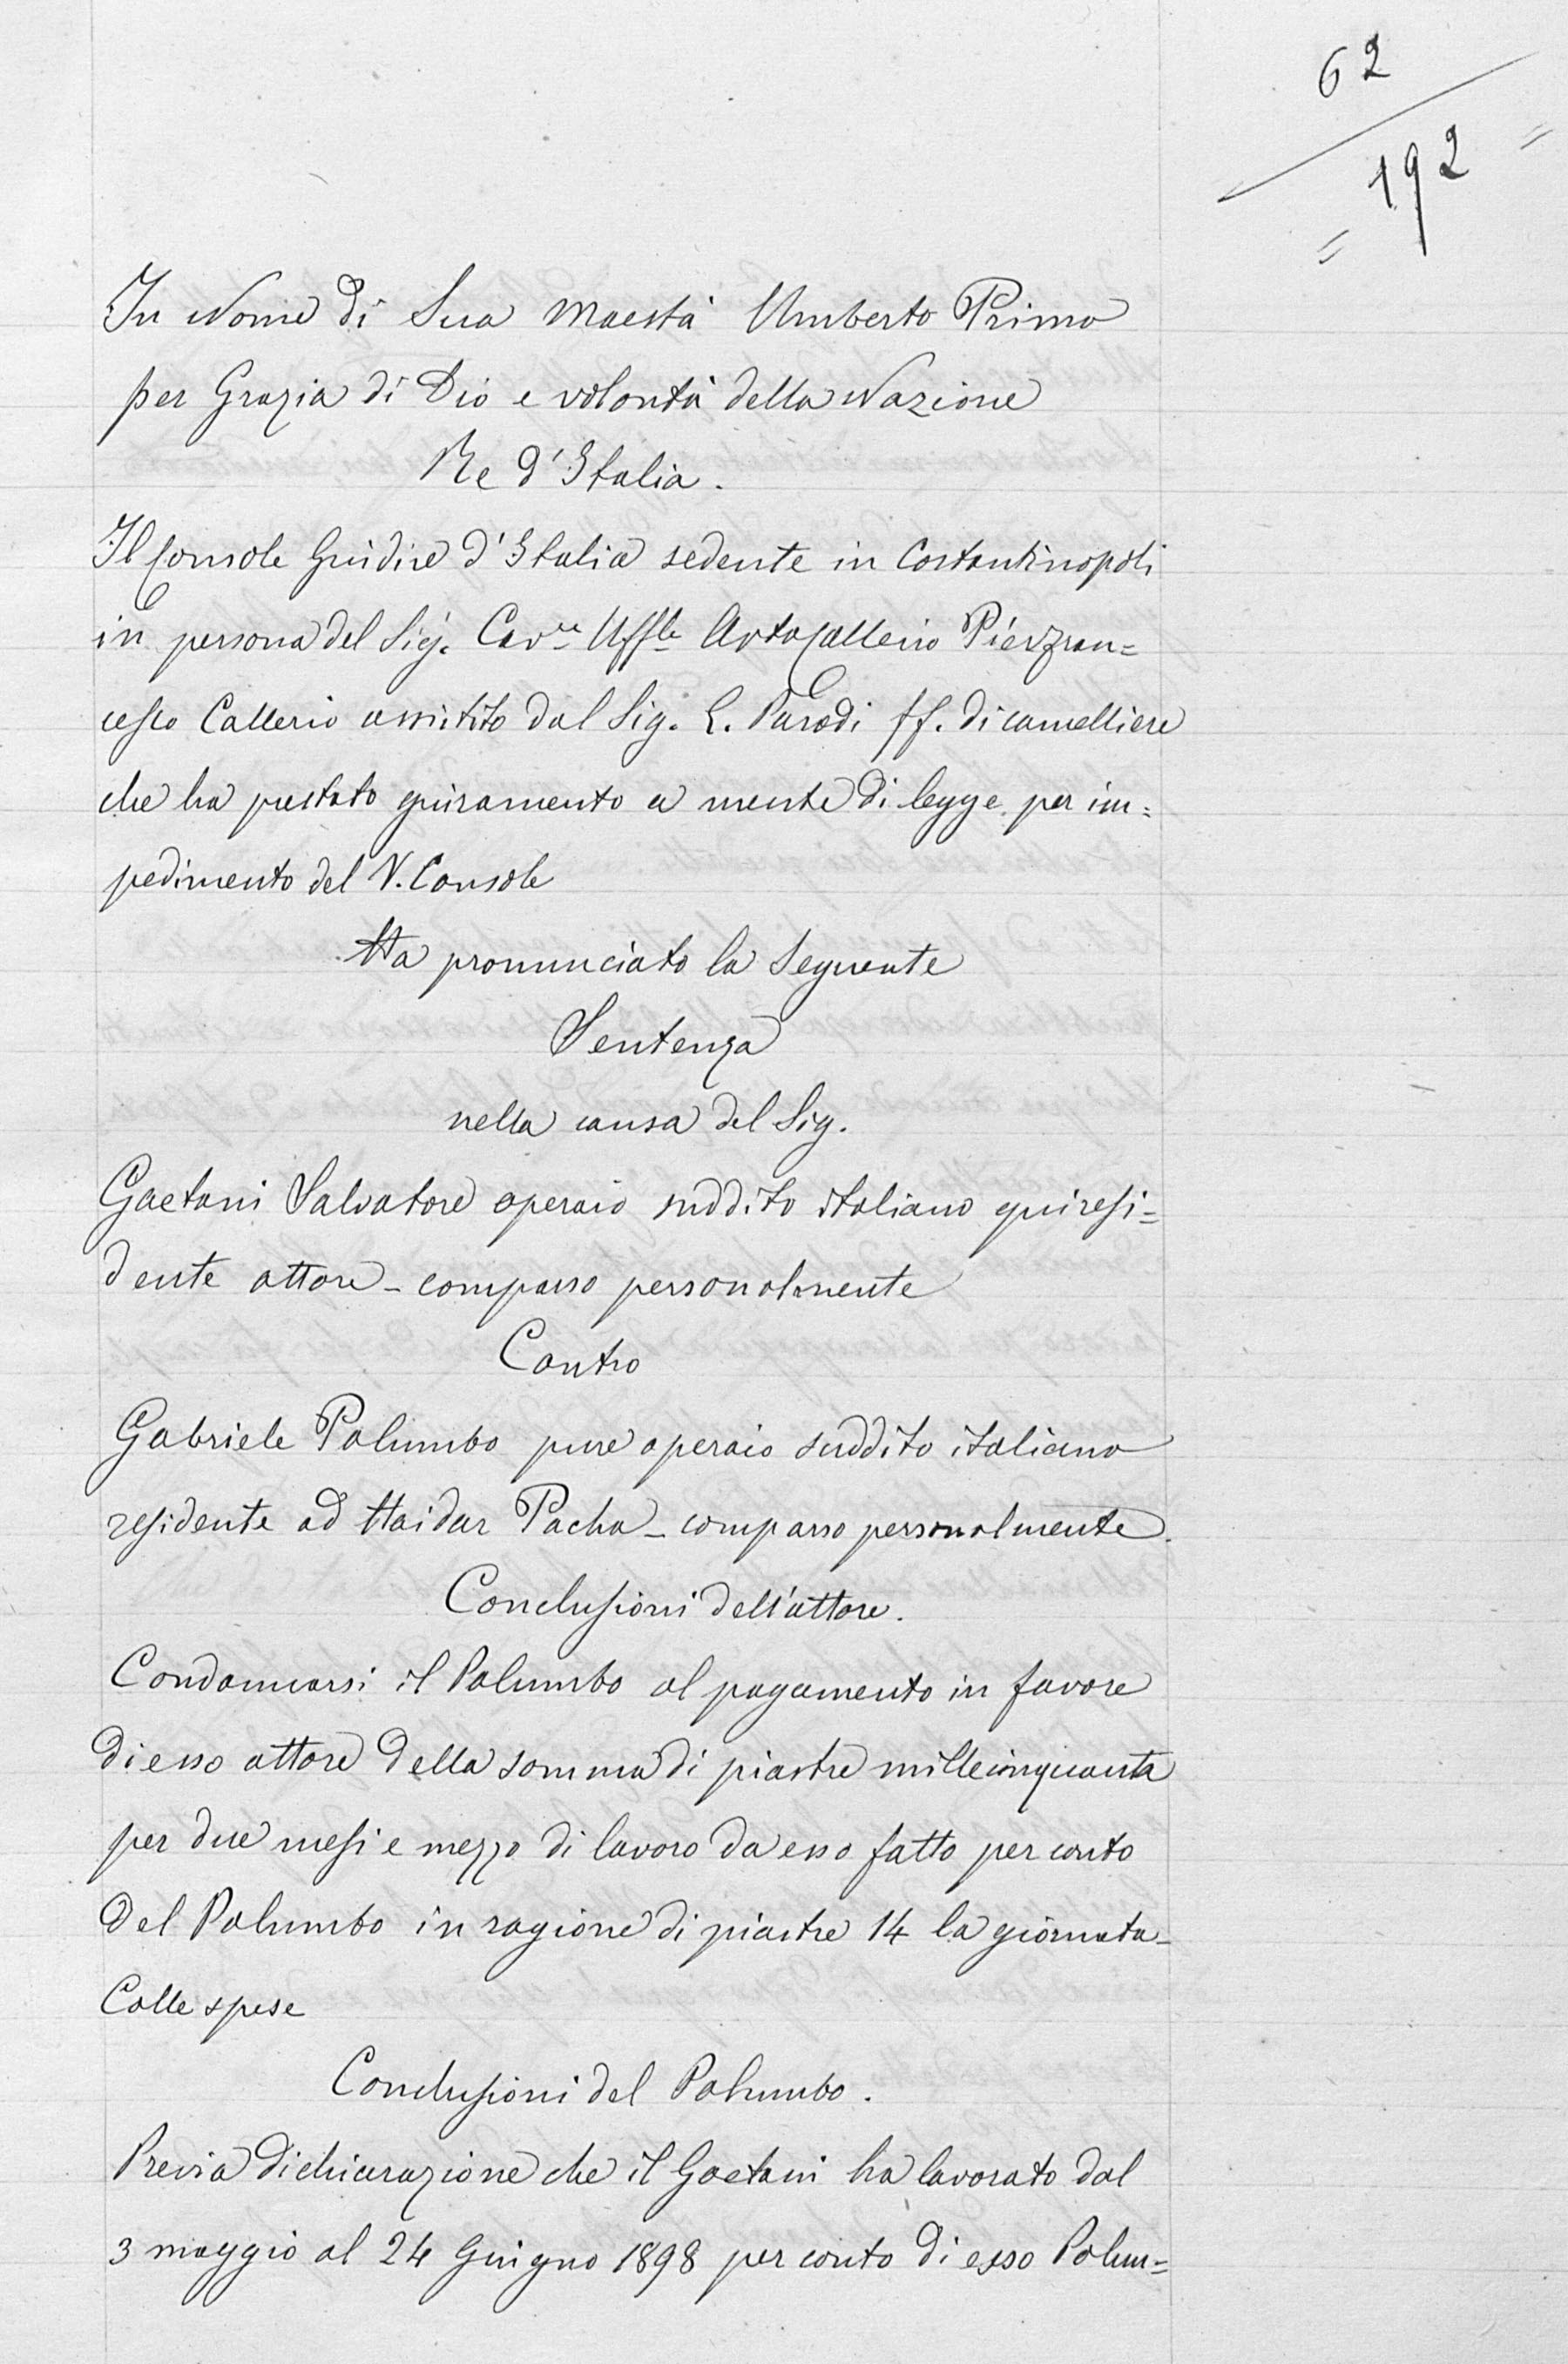 62
= 192 =
In Nome di Sua Maestà Umberto Primo
per Grazia di Dio e volontà della Nazione
Re d'Italia.
Il Console Giudice d'Italia sedente in Costantinopoli
in persona del Sig. Cav.re Uff.le Pierfran=
cesco Callerio assistito dal Sig. L. Parodi ff. di cancelliere
che ha prestato giuramento a mente di legge per im=
pedimento del V. Console
Ha pronunciato la seguente
Sentenza
nella causa del Sig.
Gaetani Salvatore operaio suddito italiano qui resi=
dente attore - comparso personalmente
Contro
Gabriele Palumbo pure operaio suddito italiano
residente ad Haidar Pacha - comparso personalmente.
Conclusioni dell'attore.
Condannarsi il Palumbo al pagamento in favore
di esso attore della somma di piastre millecinquanta
per due mesi e mezzo di lavoro da esso fatto per conto
del Palumbo in ragione di piastre 14 la giornata -
Colle spese
Conclusioni del Palumbo.
Previa dichiarazione che il Gaetani ha lavorato dal
3 maggio al 24 Giugno 1898 per conto di esso Palum=